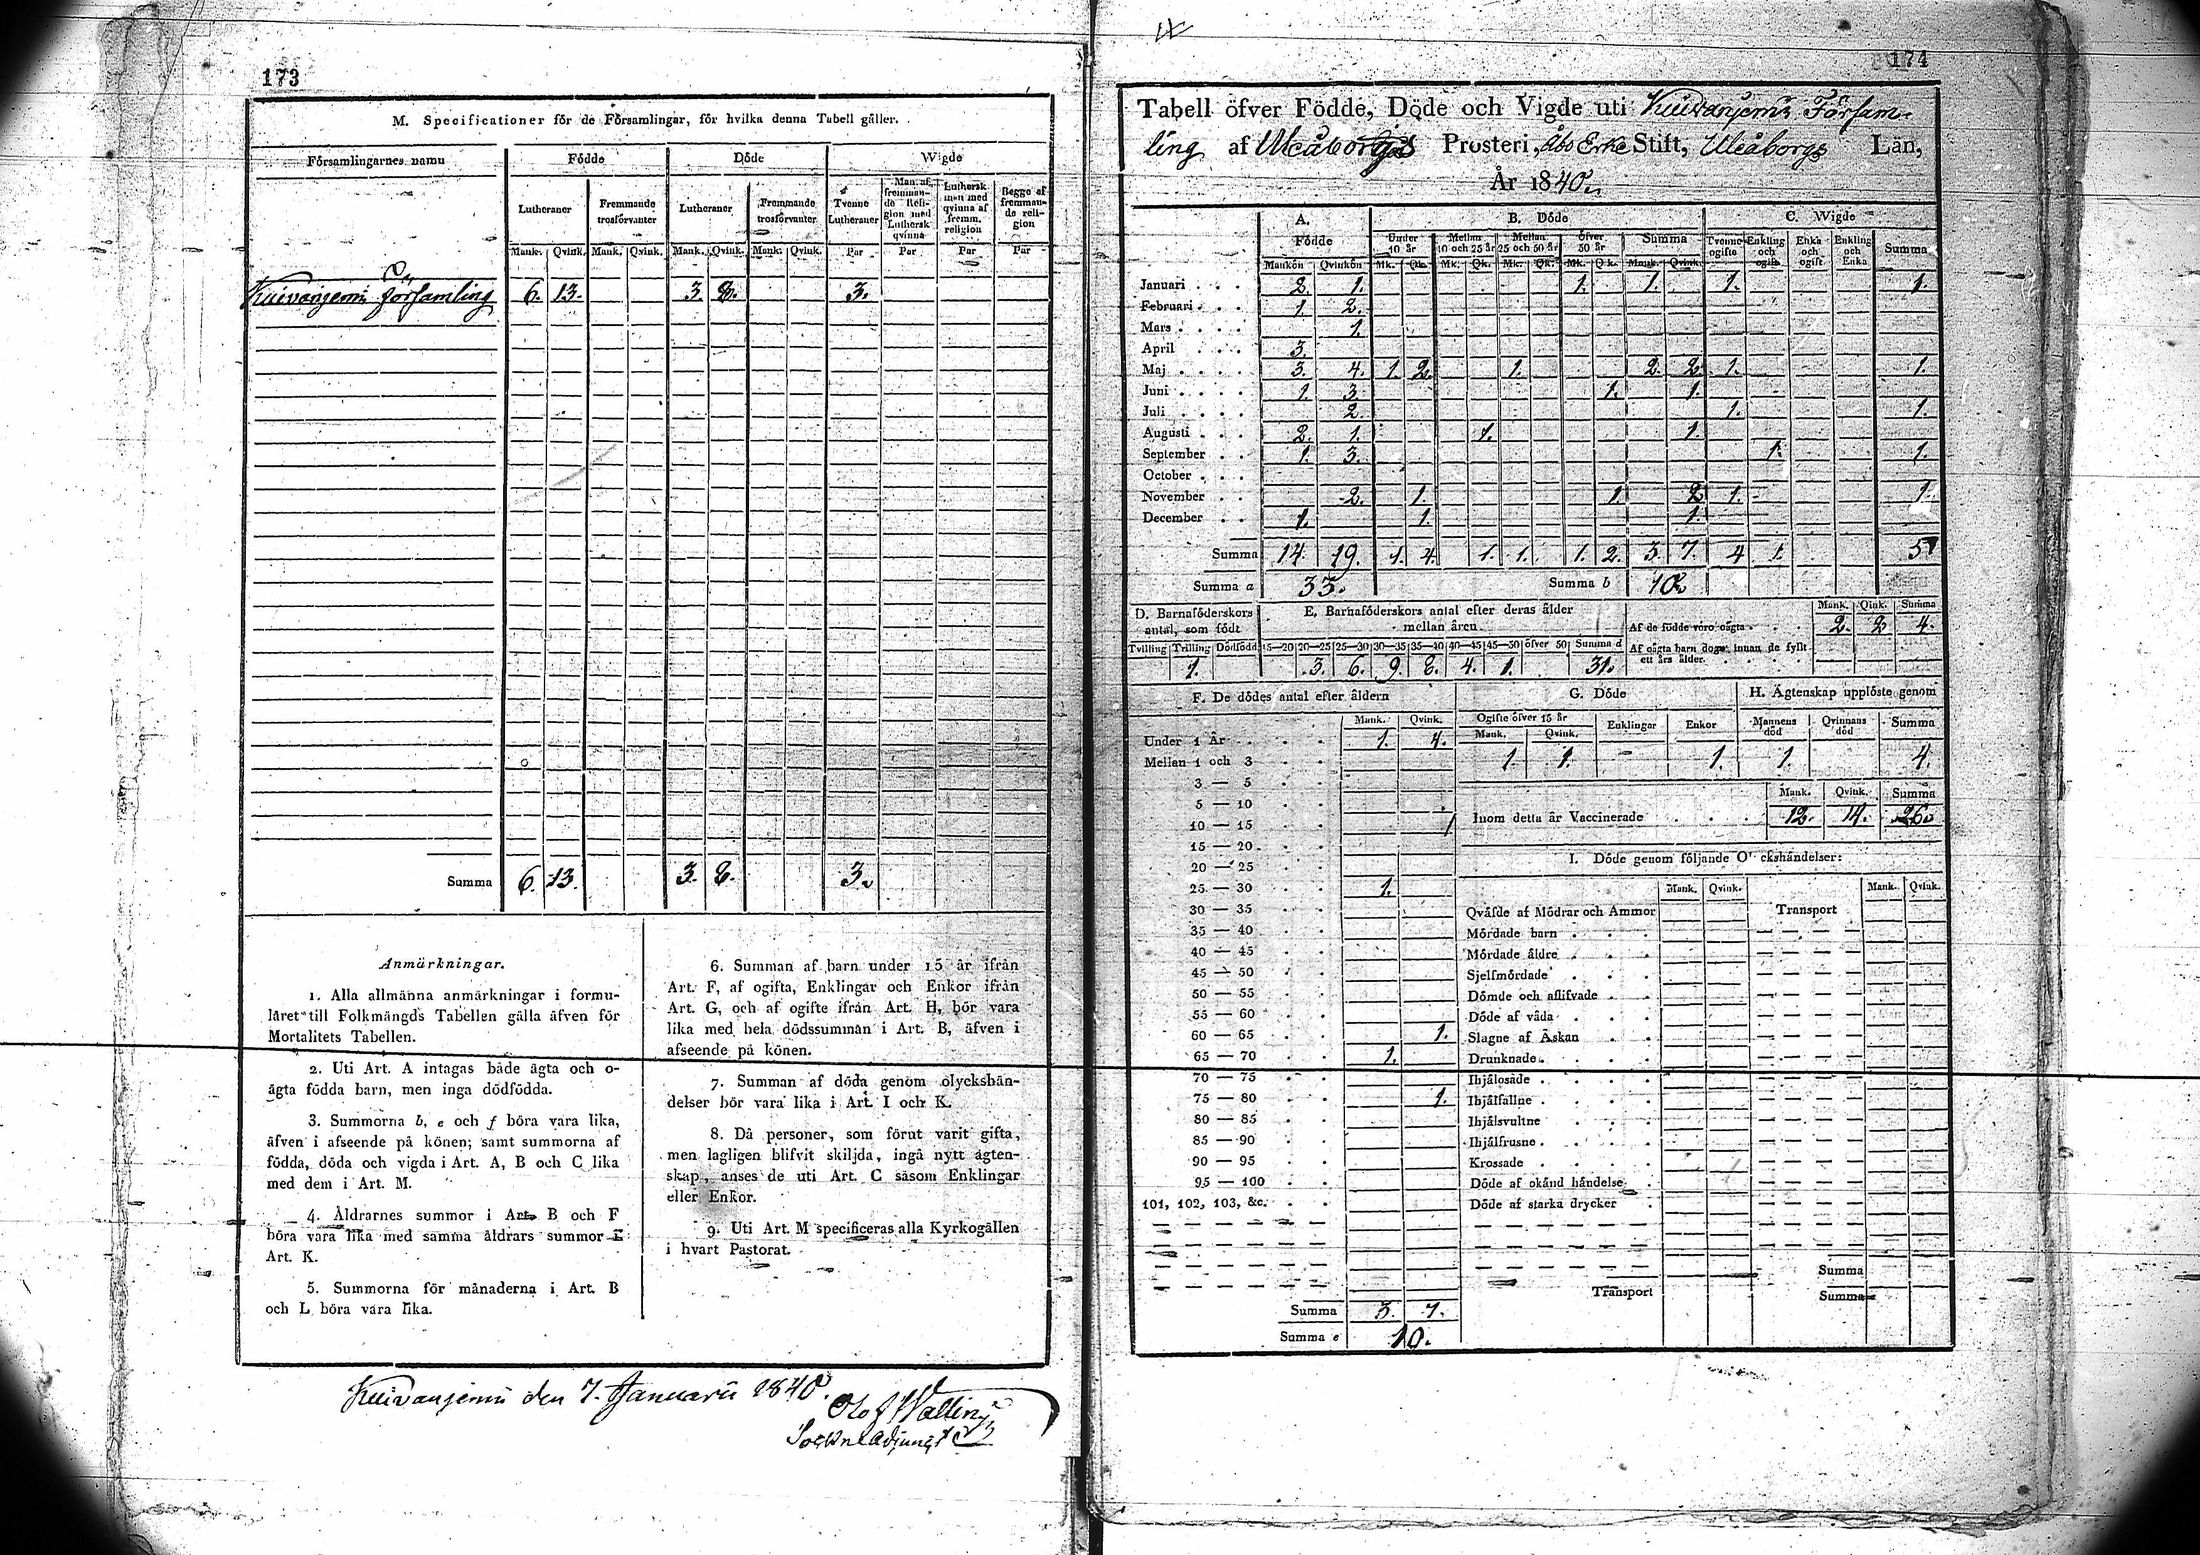 173
M. Specificationer för de Församlingar, för hvilka denna Tabell gäller.
Församlingarnes namn Födde Döde Wigde
Lutheraner Fremmande trosförvanter Lutheraner Fremmande trosförvanter Tvenne Lutheraner Man af fremmande Religion med Luthersk qvinna Luthersk man med qvinna af fremm. religion Begge af fremmande religion
Mank. Qvink. Mank. Qvink. Mank. Qvink. Mank. Qvink. Par Par Par Par
Kuivaniemi församling 6. 13. 3. 8. 3.
Summa 6. 13. 3. 8. 3.
Anmärkningar.
1. Alla allmänna anmärkningar i formu-
läret till Folkmängds Tabellen gälla äfven för
Mortalitets Tabellen.
2. Uti Art. A intagas både ägta och o-
ägta födda barn, men inga dödfödda.
3. Summorna b, e och f böra vara lika,
äfven i afseende på könen; samt summorna af
födda, döda och vigda i Art. A, B och C lika
med dem i Art. M.
4. Åldrarnes summor i Art. B och F
böra vara lika med samma åldrars summor i
Art. K.
5. Summorna för månaderna i Art. B
och L böra vara lika.
6. Summan af barn under 15 år ifrån
Art. F, af ogifta, Enklingar och Enkor ifrån
Art. G, och af ogifte ifrån Art. H, bör vara
lika med hela dödssumman i Art. B, äfven i
afseende på könen.
7. Summan af döda genom olyckshän-
delser bör vara lika i Art. I och K.
8. Då personer, som förut varit gifta,
men lagligen blifvit skiljda, ingå nytt ägten-
skap, anses de uti Art. C såsom Enklingar
eller Enkor.
9. Uti Art. M specificeras alla Kyrkogällen
i hvart Pastorat.
Kuivaniemi den 7. Januarii 1840.
Olof Wallin
Sockneadjunct
174
Tabell öfver Födde, Döde och Vigde uti Kuivaniemi Försam-
ling af Uleåborgs Prosteri, Åbo Erke Stift, Uleåborgs Län,
År 1840.
A. Födde B. Döde C. Wigde
Under 10 år Mellan 10 och 25 år Mellan 25 och 50 år Öfver 50 år Summa Tvenne ogifte Enkling och ogift Enka och ogift Enkling och Enka Summa
Mankön Qvinkön Mk. Qk. Mk. Qk. Mk. Qk. Mk. Qk. Mank. Qvink.
Januari 2. 1. 1. 1. 1. 1.
Februari 1. 2.
Mars 1.
April 3.
Maj 3. 4. 1. 2. 1. 2. 2. 1. 1.
Juni 1. 3. 1. 1.
Juli 2. 1. 1.
Augusti 2. 1. 1. 1.
September 1. 3. 1. 1.
October
November 2. 1. 1. 2 1. 1.
December 1. 1. 1.
Summa 14. 19. 1. 4. 1. 1. 1. 2. 3. 7. 4 1. 5
Summa a 33. Summa b 10.
D. Barnaföderskors antal, som födt
Tvilling Trilling Dödfödd
1.
E. Barnaföderskors antal efter deras ålder mellan åren
15—20 20—25 25—30 30—35 35—40 40—45 45—50 öfver 50 Summa d
3. 6. 9. 8. 4. 1. 31.
Mank. Qink. Summa
Af de födde voro oägta 2. 2 4.
Af oägta barn dogo innan de fyllt
ett års ålder.
F. De dödes antal efter åldern
Mank. Qvink.
Under 1 År 1. 4.
Mellan 1 och 3
3 — 5
5 — 10
10 — 15
15 — 20
20 — 25
25 — 30 1.
30 — 35
35 — 40
40 — 45
45 — 50
50 — 55
55 — 60
60 — 65 1.
65 — 70 1.
70 — 75
75 — 80 1.
80 — 85
85 — 90
90 — 95
95 — 100
101, 102, 103, &c.
Summa 3. 7.
Summa e 10.
G. Döde
Ogifte öfver 15 år Enklingar Enkor
Mank. Qvink.
1. 1. – 1.
H. Ägtenskap upplöste genom
Mannens död Qvinnans död Summa
1. 4.
Mank. Qvink. Summa
Inom detta år Vaccinerade 12. 14. 26.
I. Döde genom följande O ckshändelser:
Mank. Qvink. Mank. Qvink.
Qväfde af Mödrar och Ammor Transport
Mördade barn
Mördade äldre
Sjelfmördade
Dömde och aflifvade
Döde af våda
Slagne af Åskan
Drunknade
Ihjälosade
Ihjälfallne
Ihjälsvultne
Ihjälfrusne
Krossade
Döde af okänd händelse
Döde af starka drycker
Summa
Transport Summa